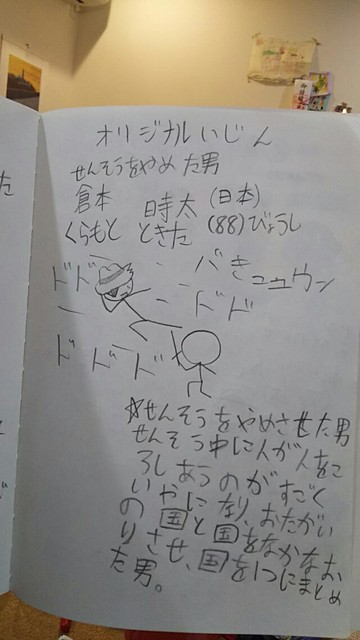 オリジナルいじん
せんそうをやめた男
倉本 時太 (日本)
くらもと ときた (88)びょうし
ドド バきュュウン
ドド
ドドドド
☆せんそうをやめさせた男
せんそう中に人が人をこ
ろしあうのがすごく
いやになり、おたがい
の国と国をなかなお
りさせ、国を1つにまとめ
た男。